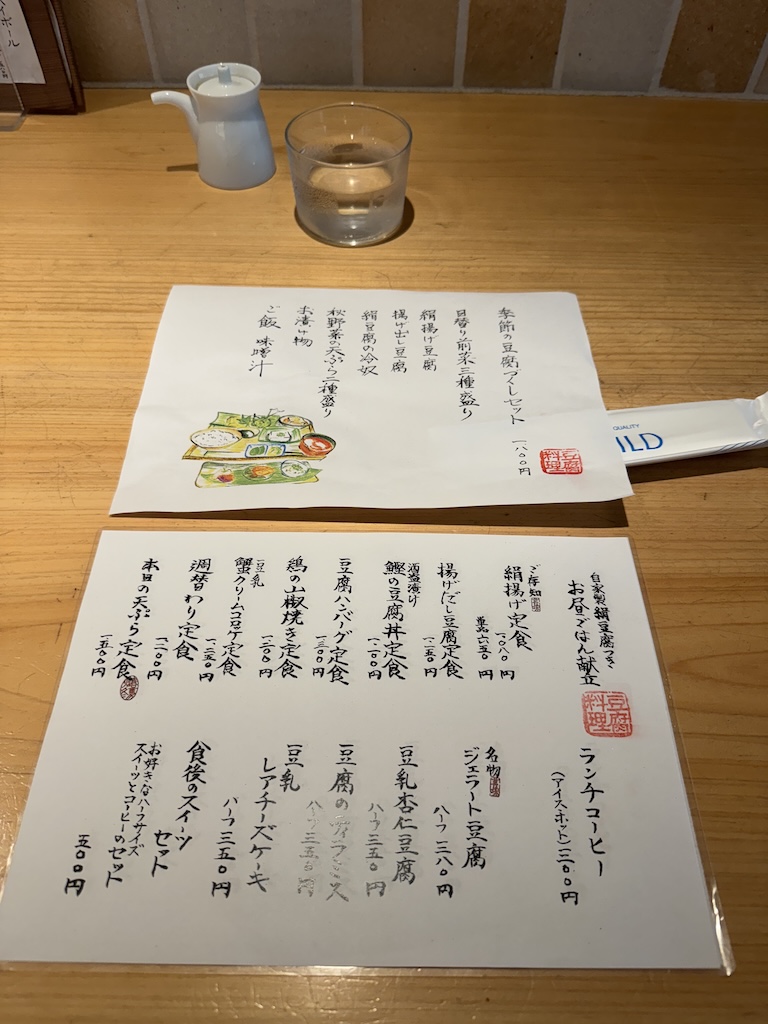 季節の豆腐づくしセット
一八〇〇円
豆腐
料理
日替り前菜三種盛り
絹揚げ豆腐
揚げ出し豆腐
絹豆腐の冷奴
秋野菜の天ぷら二種盛り
お漬け物
ご飯 味噌汁
QUALITY
ILD
自家製絹豆腐つき
お昼ごはん献立
豆腐
料理
ご存知
絹揚げ定食
一、〇八〇円
単品 六五〇円
揚げだし豆腐定食
一、一五〇円
鰹の豆腐丼定食
一、二〇〇円
豆腐ハンバーグ定食
一、三〇〇円
鶏の山椒焼き定食
一、二〇〇円
豆乳
蟹クリームコロッケ定食
一、二五〇円
週替わり定食
一、二〇〇円
本日の天ぷら定食
一、五〇〇円
ランチコーヒー
(アイス・ホット)二〇〇円
名物
ジェラート豆腐
ハーフ 三八〇円
豆乳杏仁豆腐
ハーフ 三五〇円
豆腐の
ハーフ 三五〇円
豆乳
レアチーズケーキ
ハーフ 三五〇円
食後のスイーツ
セット
お好きなハーフサイズ
スイーツとコーヒーのセット
五〇〇円